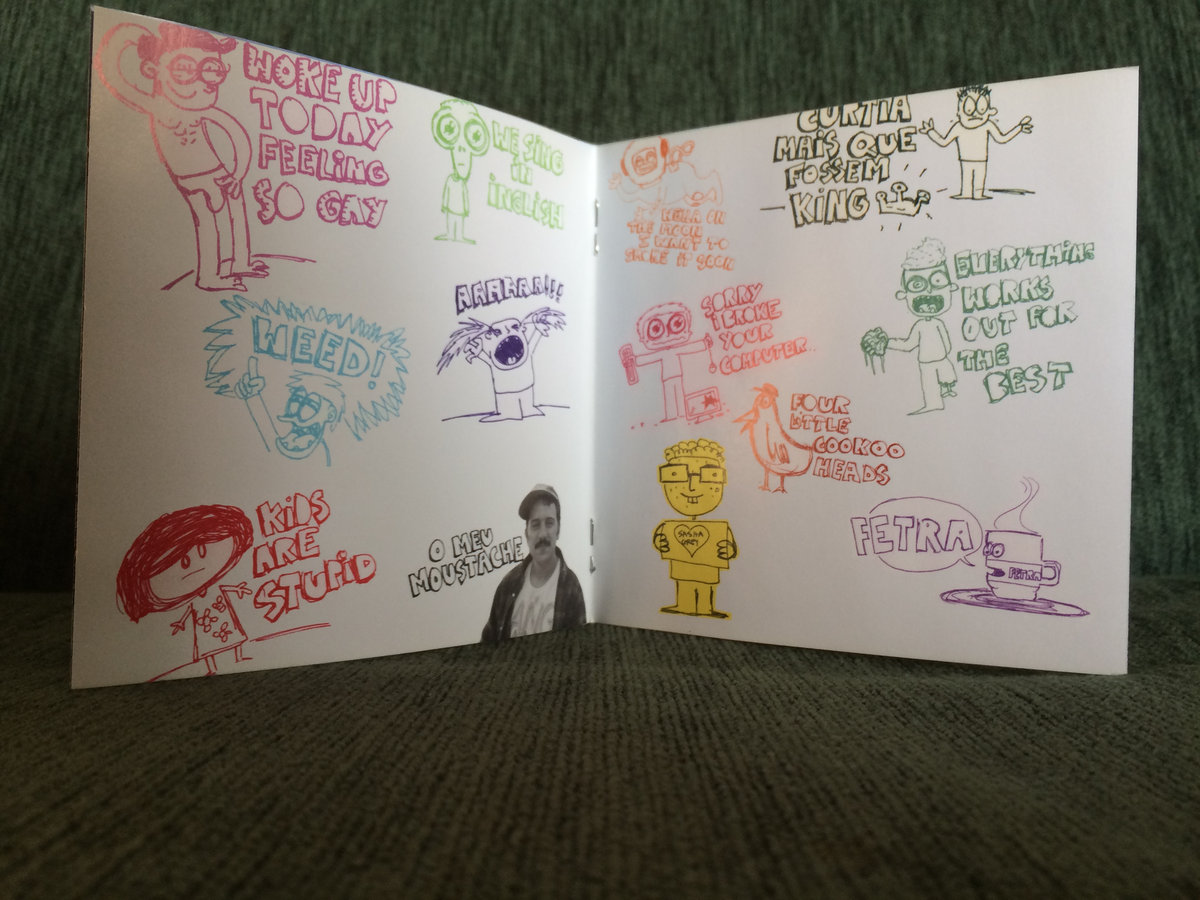 WOKE UP
TODAY
FEELING
SO GAY
WE SING
IN
INGLISH
WEED!
AAAAAA!!!
KIDS
ARE
STUPID
O MEU
MOUSTACHE
ON
THE MOON
I WANT TO
SHARE IT SOON
CURTIA
MAIS QUE
FOSSEM
KING
SORRY
I BROKE
YOUR
COMPUTER...
EVERYTHING
WORKS
OUT FOR
THE
BEST
FOUR
LITTLE
COOKOO
HEADS
SASHA
GREY
FETRA
FETRA